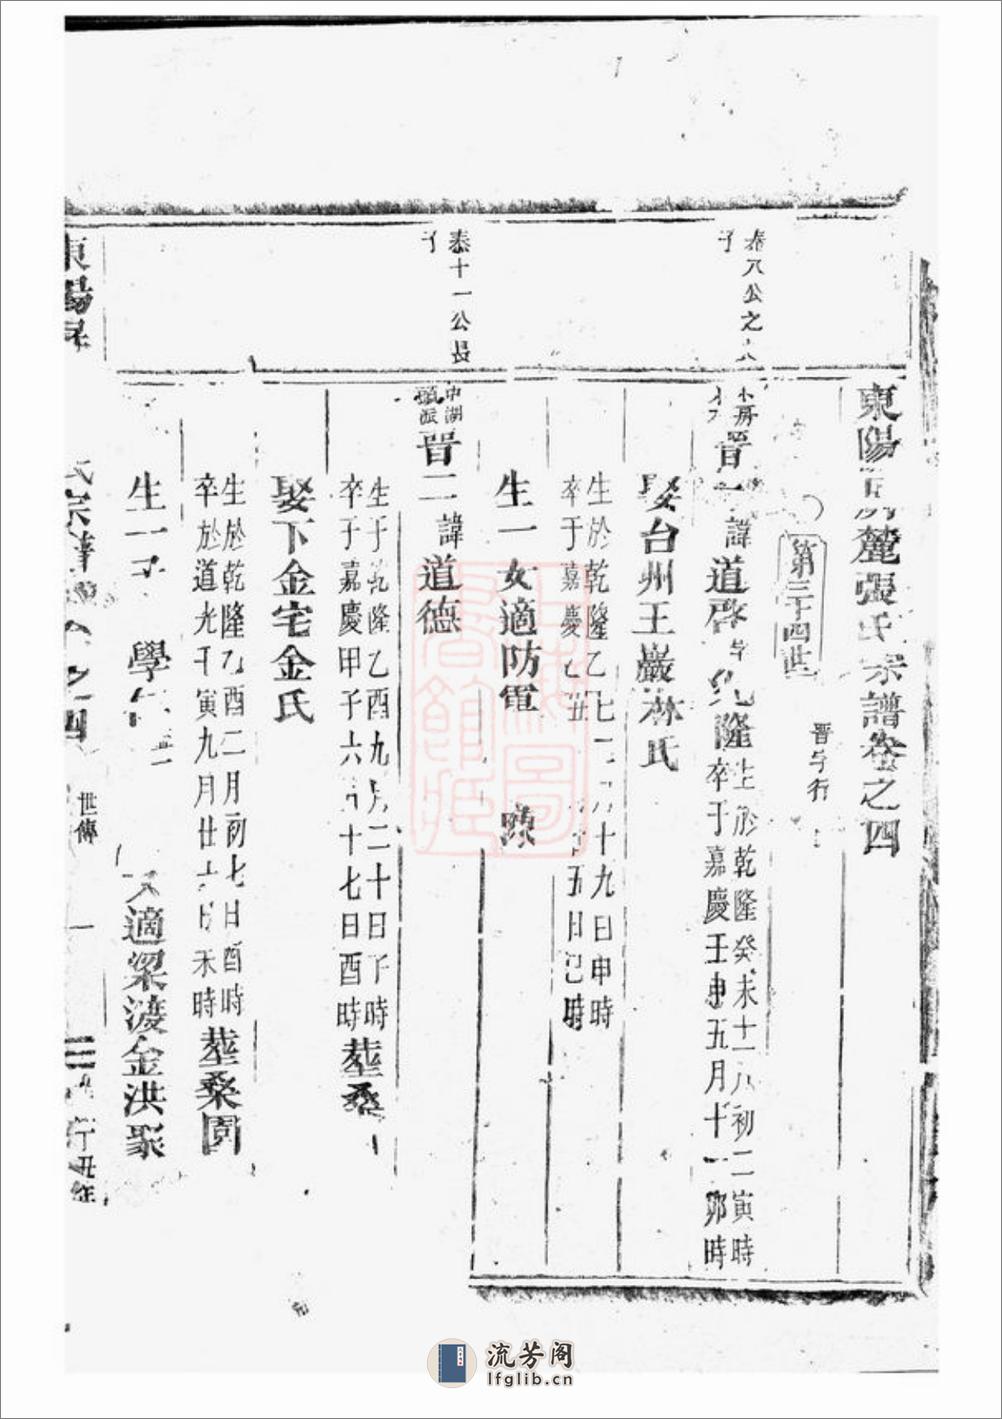 東陽麓張氏宗譜卷之四
晉字行
第三十四世
泰八公之
子
房
晉一諱道啓字兆隆
生於乾隆癸未十一月初二寅時
卒于嘉慶壬申五月十一卯時
娶台州王巖林氏
生於乾隆乙十九日申時
卒于嘉慶乙丑五日巳時
生一女適防電
泰十一公長
子
中湖
派
晉二諱道德
生于乾隆乙酉九月二十日子時
卒于嘉慶甲子六月十七日酉時
葬桑
娶下金宅金氏
生於乾隆乙酉二月初七日酉時
卒於道光壬寅九月廿六日未時
葬桑園
生一子學
女適梁渡金洪聚
東陽
氏宗譜卷之四
世傳
一
丁丑年
流芳阁
lfglib.cn